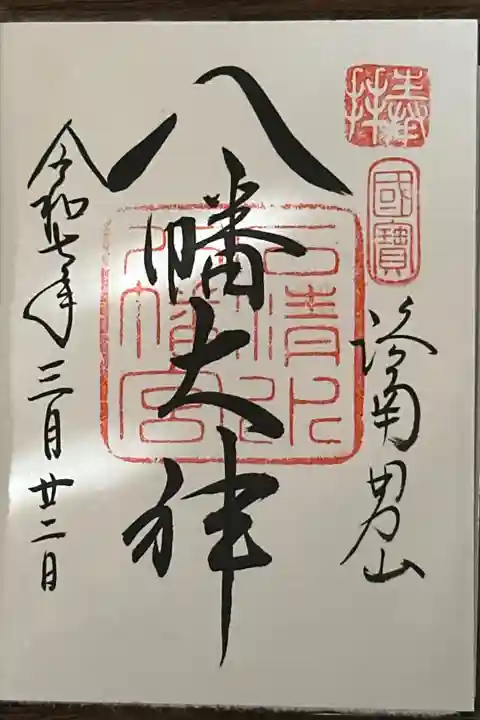 奉拝
國寶
洛南男山
八幡大神
石清水八幡宮
令和七年三月廿二日